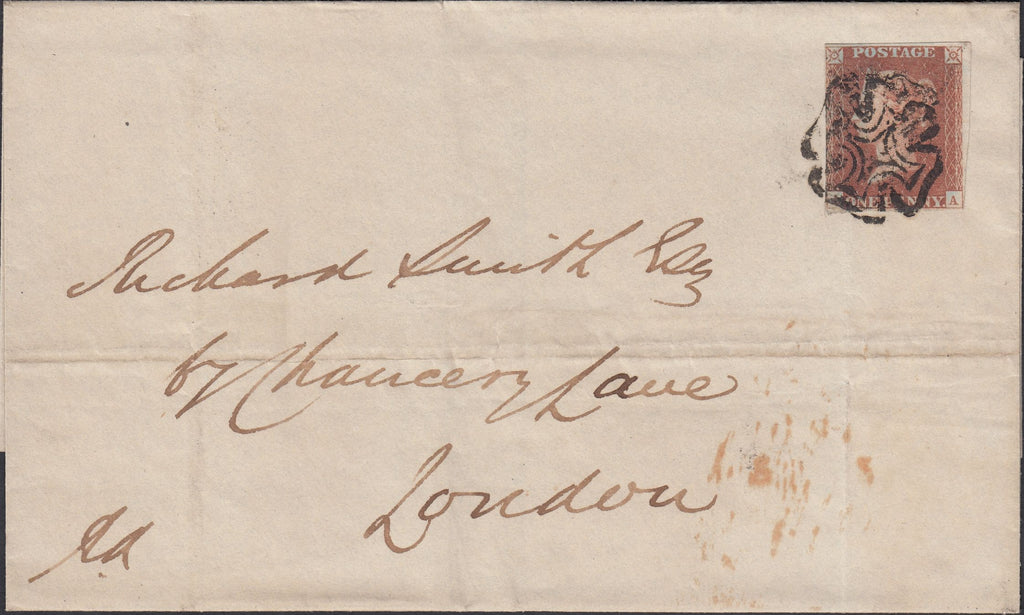 POSTAGE
ONE PENNY A
Richard Smith Esq
67 Chancery Lane
London
Pd